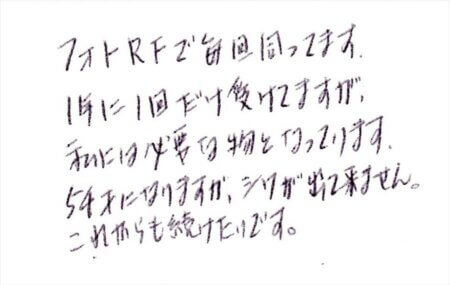 フォトRFで毎回伺ってます。
1年に1回だけ受けてますが、
私には必要な物となってります。
54才になりますが、シワが出て来ません。
これからも続けたいです。